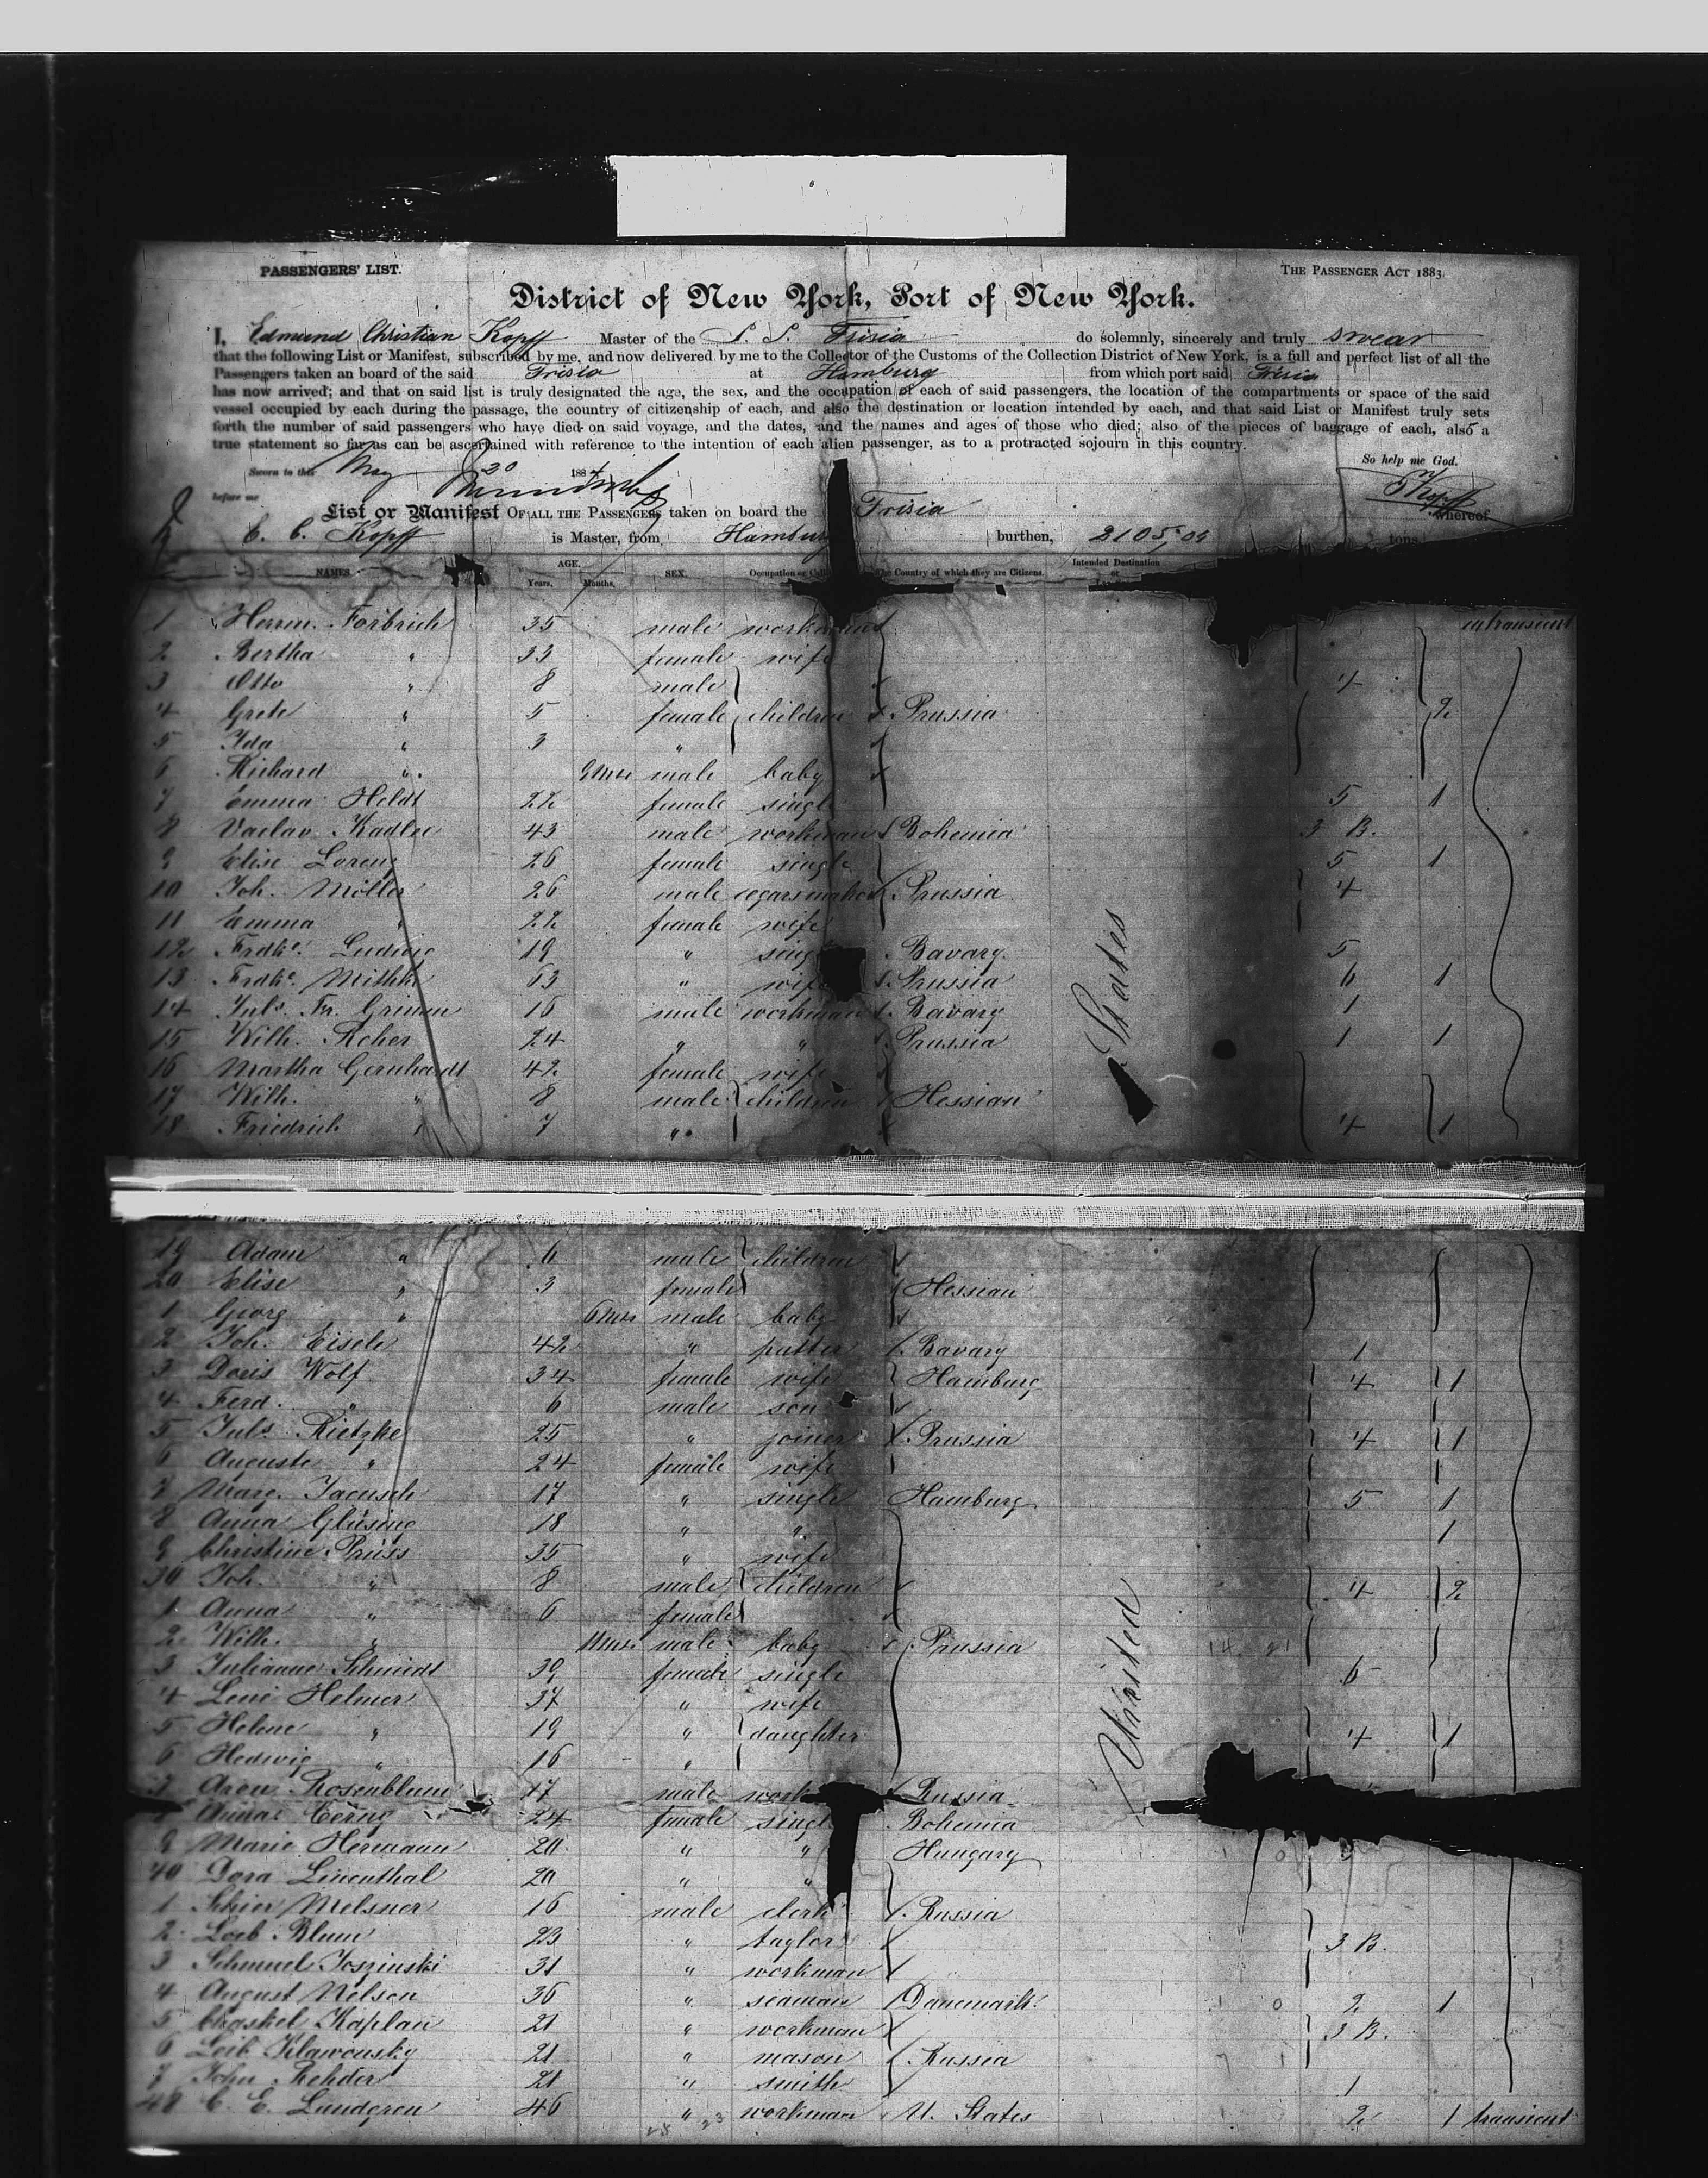 PASSENGERS' LIST. THE PASSENGER ACT 1883.
District of New York, Port of New York.
I, Edmund Christian Kopff Master of the S. S. Frisia do solemnly, sincerely and truly swear
that the following List or Manifest, subscribed by me, and now delivered by me to the Collector of the Customs of the Collection District of New York, is a full and perfect list of all the
Passengers taken an board of the said Frisia at Hamburg from which port said Frisia
has now arrived; and that on said list is truly designated the age, the sex, and the occupation of each of said passengers, the location of the compartments or space of the said
vessel occupied by each during the passage, the country of citizenship of each, and also the destination or location intended by each, and that said List or Manifest truly sets
forth the number of said passengers who have died on said voyage, and the dates, and the names and ages of those who died; also of the pieces of baggage of each, also a
true statement so far as can be ascertained with reference to the intention of each alien passenger, as to a protracted sojourn in this country.
So help me God.
Sworn to this May 20 1884
before me Kopff
List or Manifest OF ALL THE PASSENGERS taken on board the Frisia whereof
E. C. Kopff is Master, from Hamburg burthen, 2105,09 tons
NAMES. AGE. Years. Months. SEX. Occupation or The Country of which they are Citizens. Intended Destination or
1 Herm. Forbrich 35 male workman intransient
2 Bertha " 33 female wife
3 Otto " 8 male 4
4 Grete " 5 female children Prussia 2
5 Ida " 3 "
6 Richard " 9 Mts male baby
7 Emma Heldt 22 female single 5 1
8 Vaclav Kadlec 43 male workman Bohemia 3 B.
9 Elise Lorenz 26 female single 5 1
10 Joh. Möller 26 male segarsmaker Prussia 4
11 Emma " 22 female wife
12 Frdke. Ludwig 19 " single Bavary 5
13 Frdke. Mithke 63 " wife Prussia 6 1
14 Juls. Fr. Grimm 16 male workman Bavary 1
15 Wilh. Reher 24 " " Prussia 1 1
16 Martha Gernhardt 42 female wife
17 Wilh. " 8 male children Hessian
18 Friedrich " 7 " 4 1
States
19 Adam " 6 male children
20 Elise " 3 female Hessian
1 Georg " 6 Mts male baby
2 Joh. Eisele 42 " Bavary 1
3 Doris Wolf 34 female wife Hamburg 4 1
4 Ferd. " 6 male son
5 Juls. Rietzke 25 " joiner Prussia 4 1
6 Auguste " 24 female wife
7 Marg. Jacusch 17 " single Hamburg 5 1
8 Anna Glüsing 18 " " 1
9 Christine Prüss 35 " wife
30 Joh. " 8 male children 4 2
1 Anna " 6 female
2 Wilh. " 11 Mts male baby Prussia
3 Julianne Schmidt 30 female single 6
4 Lene Helmer 37 " wife
5 Helene " 19 " daughter 4 1
6 Hedwig " 16 "
United
7 Aron Rosenblum 47 male work Russia
8 Anna Cerny 24 female single Bohemia
9 Marie Hermann 20 " " Hungary
40 Dora Linenthal 20 " "
1 Schier Melsner 16 male clerk Russia
2 Loeb Blum 23 " taylor 3 B.
3 Schmuel Joszinski 31 " workman
4 August Nelson 36 " seaman Danemark 2 1
5 Chaskel Kaplan 21 " workman 3 B.
6 Leib Klawonsky 21 " mason Russia
7 John Rehder 21 " smith 1
48 C. E. Lundgren 46 " workman U. States 2 1 transient